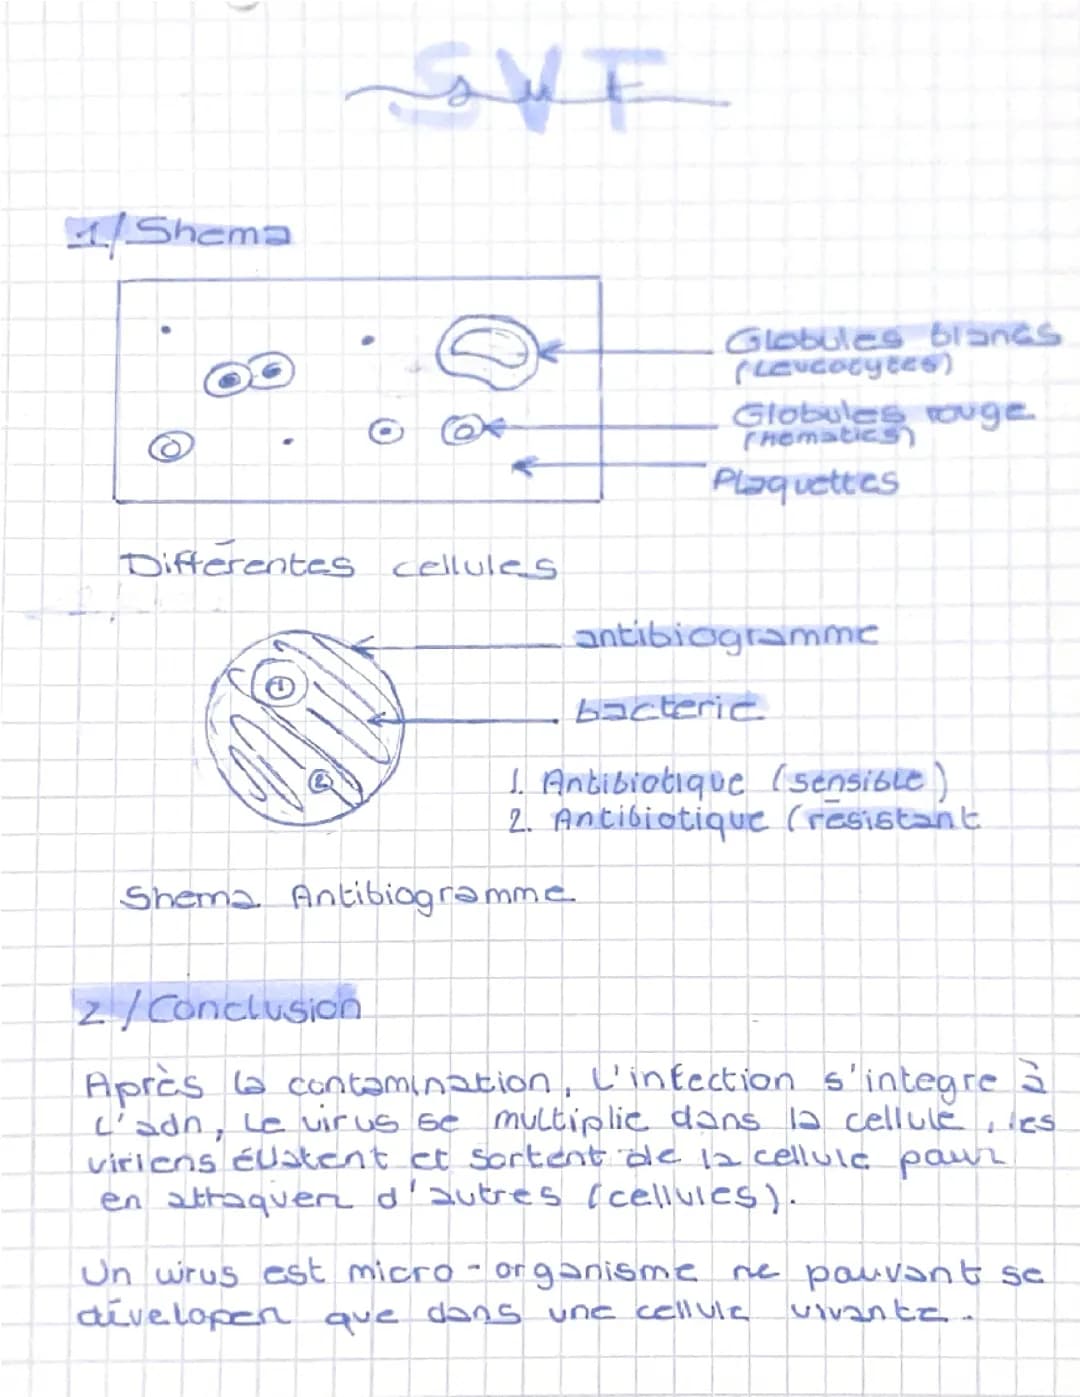 SVT
svt
1/ Shema
Globules blancs
(Leucocytes)
Globules rouge
(hematies)
Plaquettes
Différentes cellules
antibiogramme
bacterie
1
2
1. Antibiotique (sensible)
2. Antibiotique (résistant
Shema Antibiogramme
2 / Conclusion
Après la contamination, L'infection s'integre à
L'adn, Le virus se multiplie dans la cellule, les
et sortent de la cellule pour
en attaquer d'autres (cellules).
Un virus est micro-organisme ne pouvant se
développer que dans une cellule vivante.